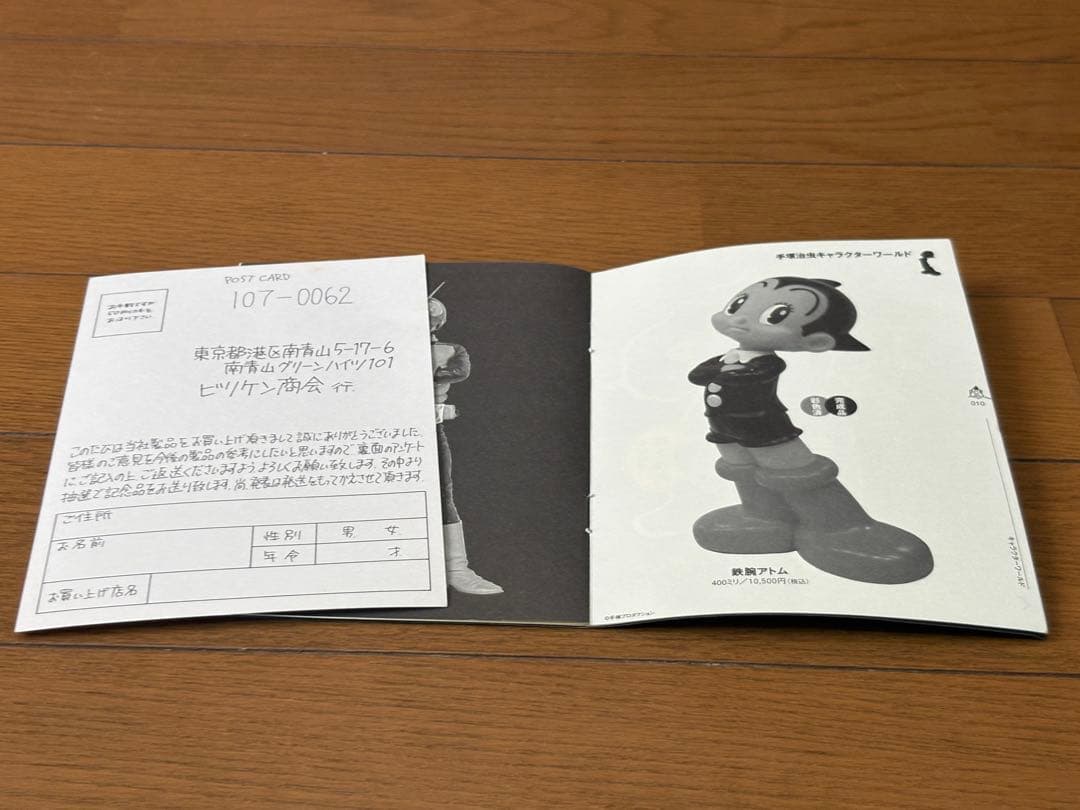 POST CARD
107-0062
お手数ですが
50円切手を
おはり下さい
東京都港区南青山5-17-6
南青山グリーンハイツ101
ビリケン商会 行
このたびは当社製品をお買い上げ頂きまして誠にありがとうございました。
皆様のご意見を今後の製品の参考にしたいと思いますので、裏面のアンケート
にご記入の上、ご返送くださいますよう、よろしくお願い致します。その中より
抽選で記念品をお送り致します。尚、発表は発送をもってかえさせて頂きます。
ご住所
お名前
性別 男 女
年令 才
お買い上げ店名
手塚治虫キャラクターワールド
彩色済 完成品
010
キャラクターワールド
鉄腕アトム
400ミリ/10,500円(税込)
©手塚プロダクション